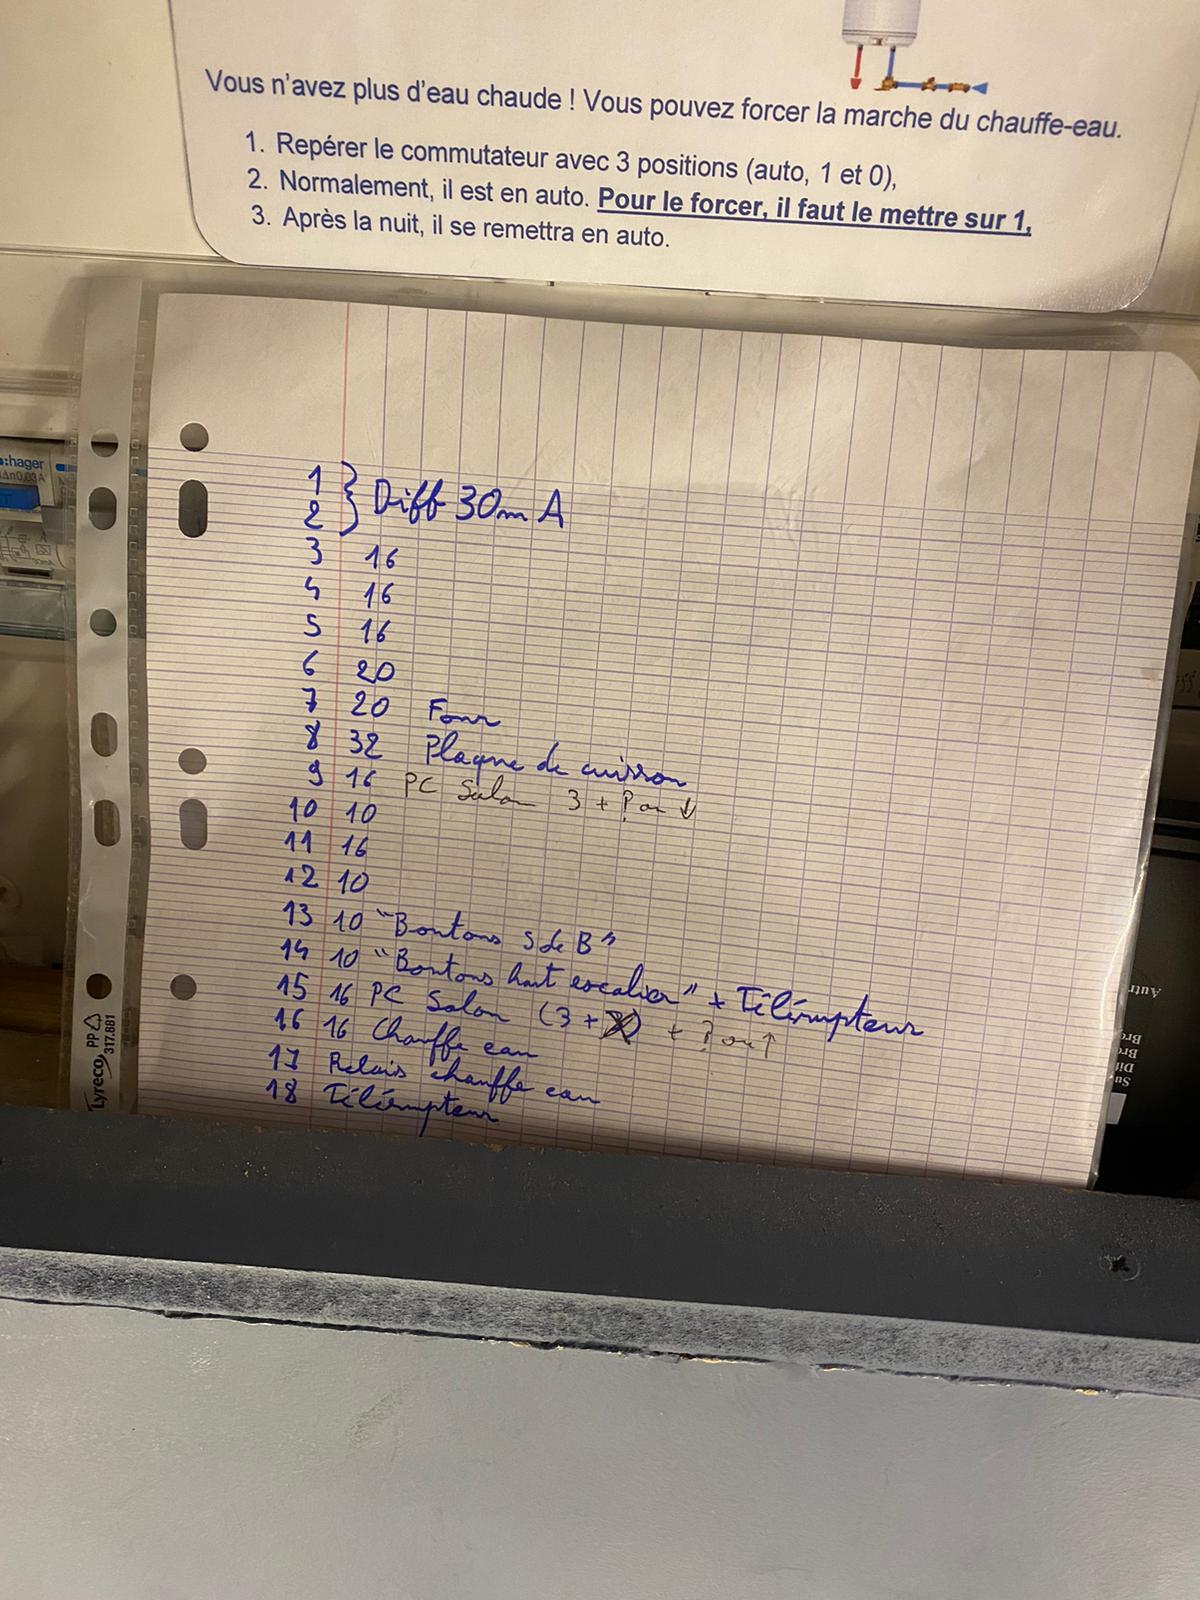 Vous n'avez plus d'eau chaude ! Vous pouvez forcer la marche du chauffe-eau.
1. Repérer le commutateur avec 3 positions (auto, 1 et 0),
2. Normalement, il est en auto. Pour le forcer, il faut le mettre sur 1,
3. Après la nuit, il se remettra en auto.
:hager
Δn0,03A
1 } Diff 30mA
2
3 16
4 16
5 16
6 20
7 20 Four
8 32 Plaque de cuisson
9 16 PC Salon 3 + ? ou ↓
10 10
11 16
12 10
13 10 "Boutons S de B"
14 10 "Boutons haut escalier" + Télérupteur
15 16 PC Salon (3 + ) + ? ou ↑
16 16 Chauffe eau
17 Relais chauffe eau
18 Télérupteur
Lyreco PP
317.881
Autr
Bro
Bro
Dit
Su